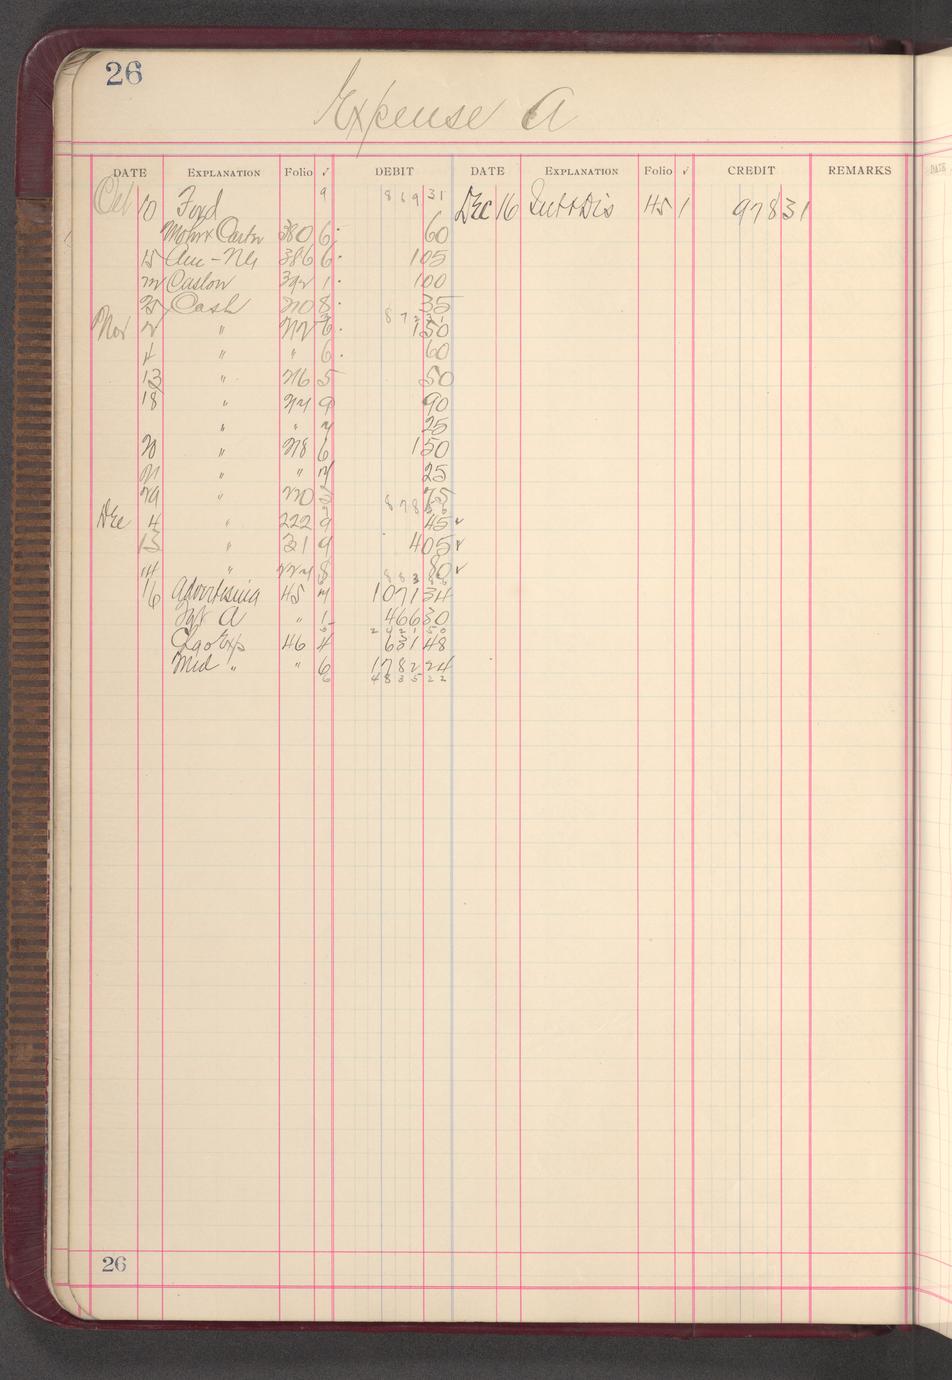 26
Expense A
DATE EXPLANATION Folio √ DEBIT DATE EXPLANATION Folio √ CREDIT REMARKS
Oct 10 Fwd 9 869 31 Dec 16 Int & Dis 45 1 978 31
380 6 60
15 386 6 1 05
22 Caslon 392 1 1 00
25 Cash 210 8 35
872 31
Nov 2 " 212 6 1 50
4 " " 6 60
13 " 216 5 50
18 " 214 9 90
" " 4 25
20 " 218 6 1 50
21 " " 4 25
29 " 220 3 75
878 56
Dec 4 " 222 9 45 √
13 " 21 9 4 05 √
14 " 224 8 80 √
883 86
16 Advertising 45 7 1071 34
A " 1 466 30
2421 50
Chgo Exp 46 4 631 48
Mid " " 6 1782 24
6 4835 22
26